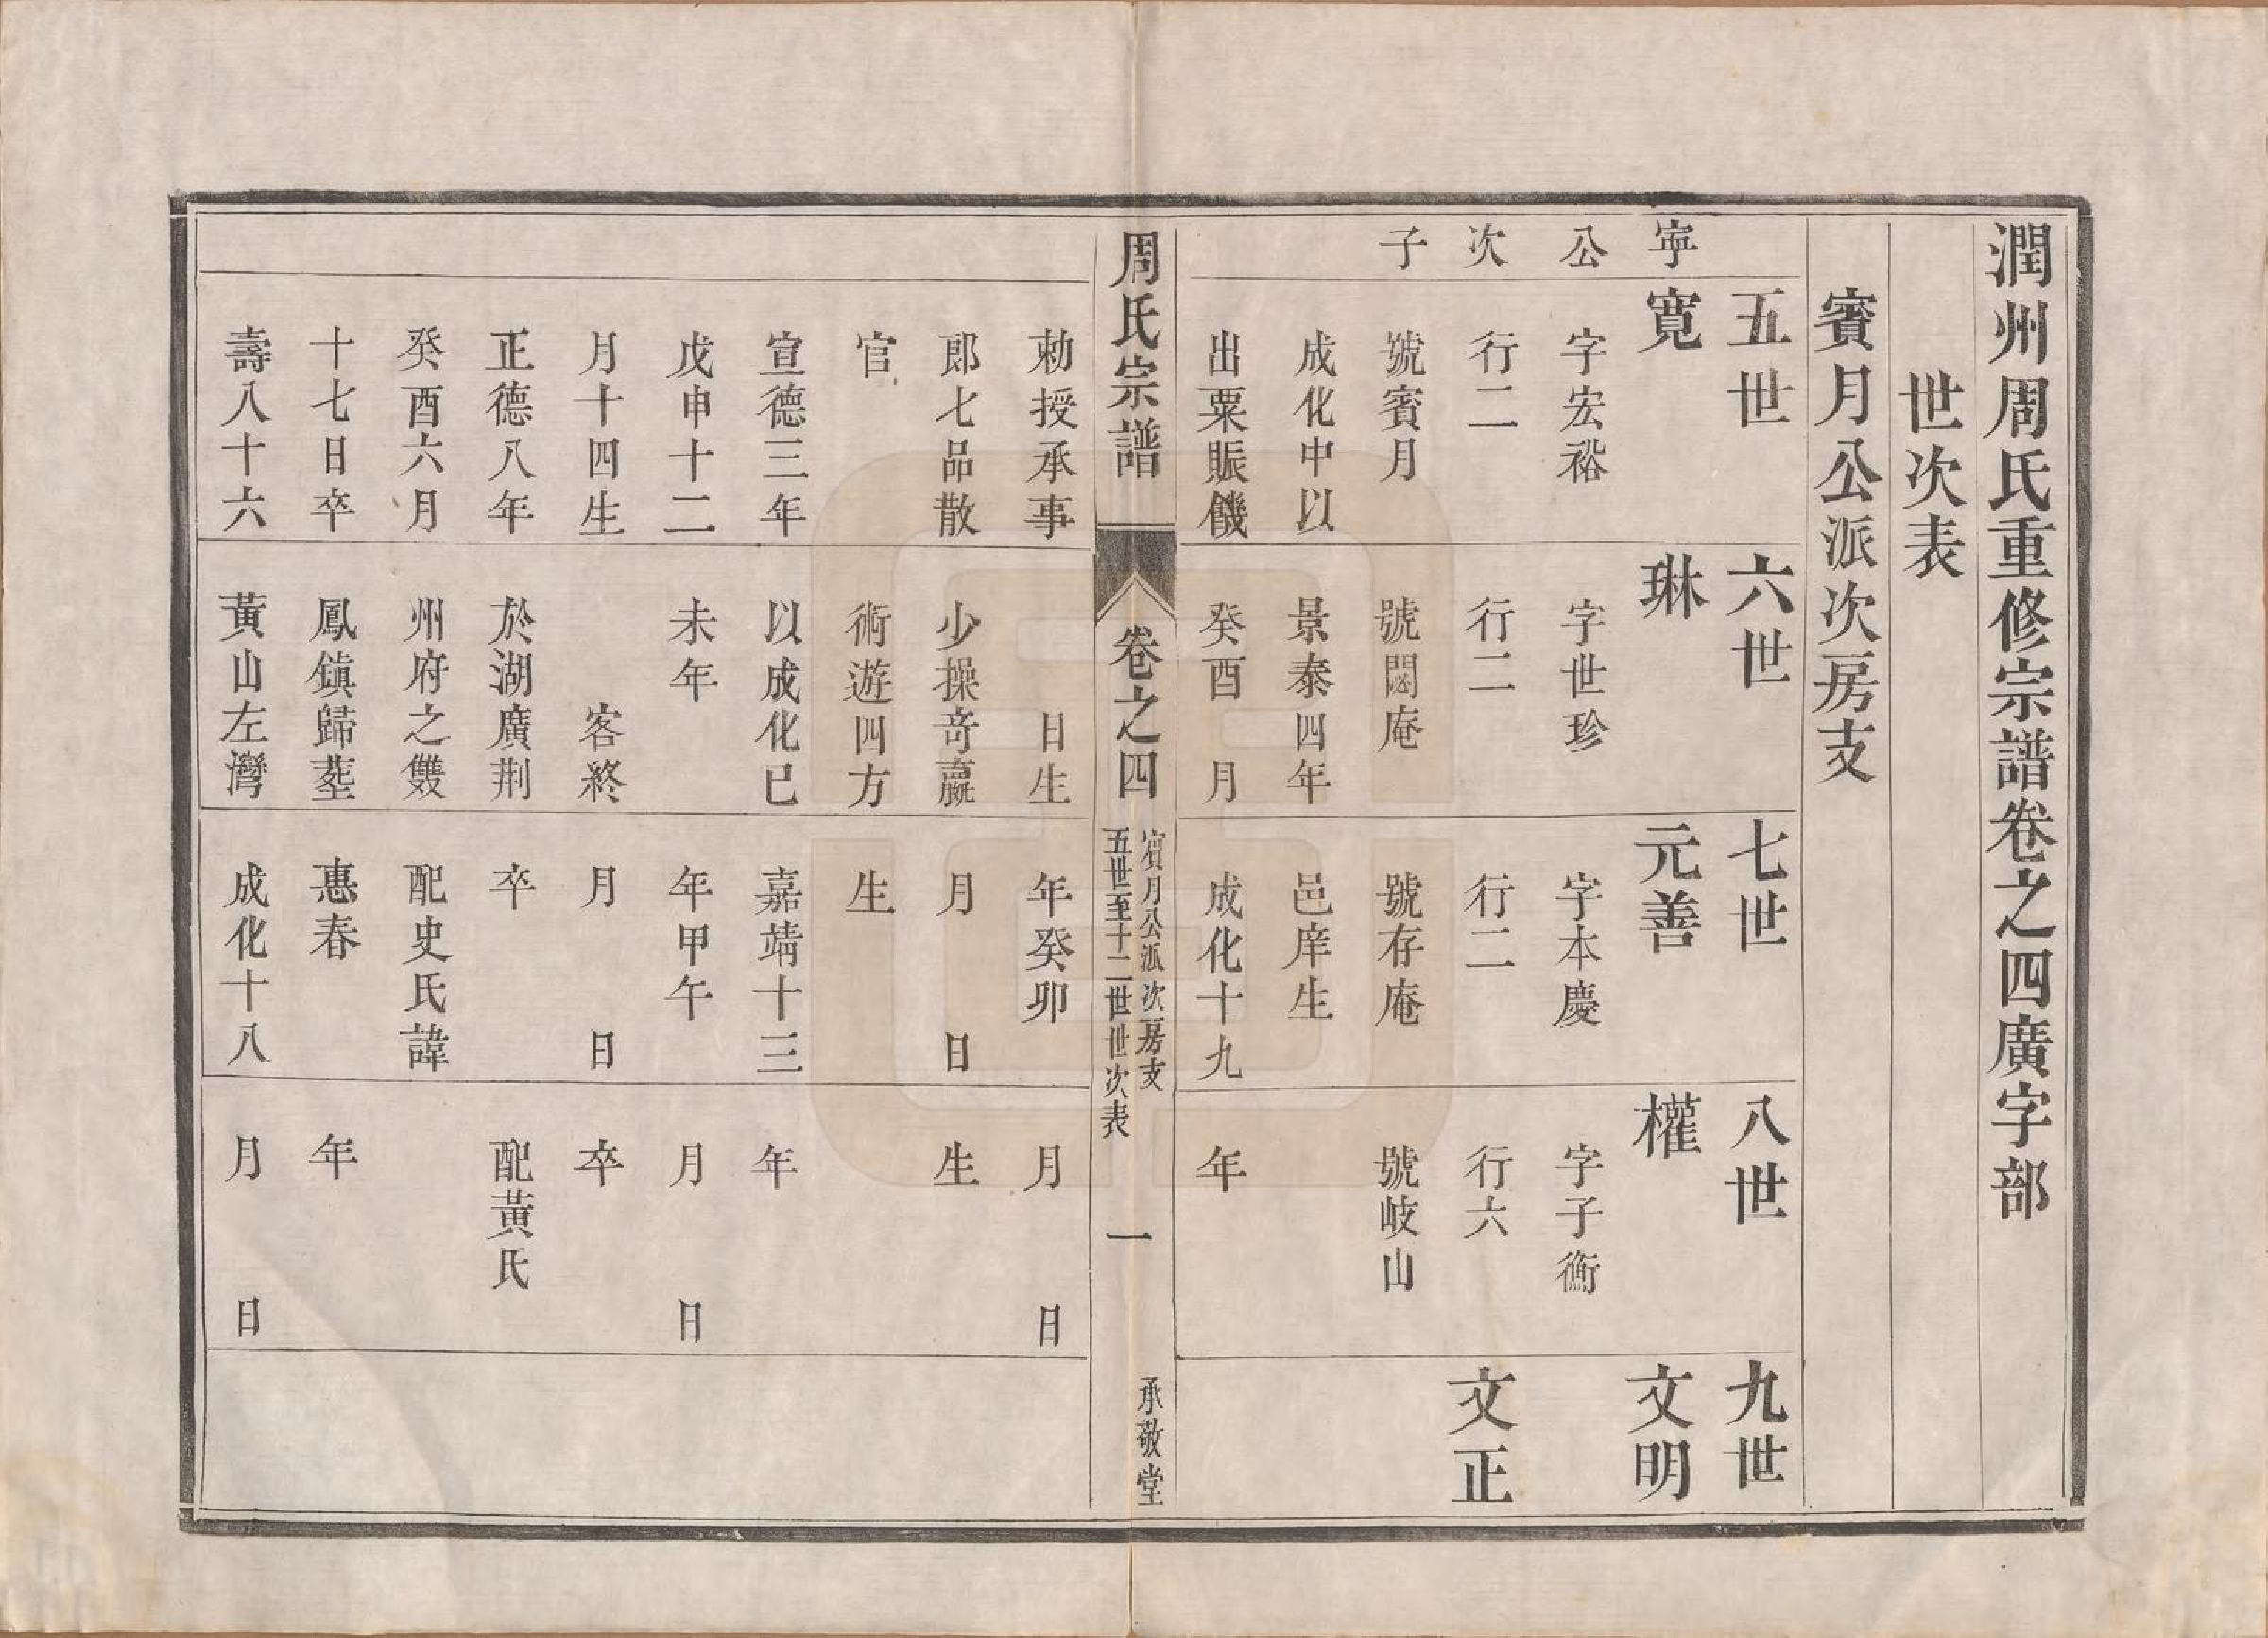 潤州周氏重修宗譜卷之四廣字部
世次表
賓月公派次房支
五世
六世
七世
八世
九世
寧公次子
寬
字宏裕
行二
號賓月
成化中以
出粟賑饑
勅授承事
郎七品散
官
宣德三年
戊申十二
月十四生
正德八年
癸酉六月
十七日卒
壽八十六
琳
字世珍
行二
號閟庵
景泰四年
癸酉 月
日生
少操奇贏
術遊四方
以成化已
未年
客終
於湖廣荆
州府之雙
鳳鎮歸塟
黃山左灣
元善
字本慶
行二
號存庵
邑庠生
成化十九
年癸卯
月 日
生
嘉靖十三
年甲午
月 日
卒
配史氏諱
惠春
成化十八
權
字子衡
行六
號岐山
年
月 日
生
年
月 日
卒
配黃氏
年
月 日
文明
文正
周氏宗譜 卷之四
賓月公派次房支
五世至十二世世次表
一
承敬堂